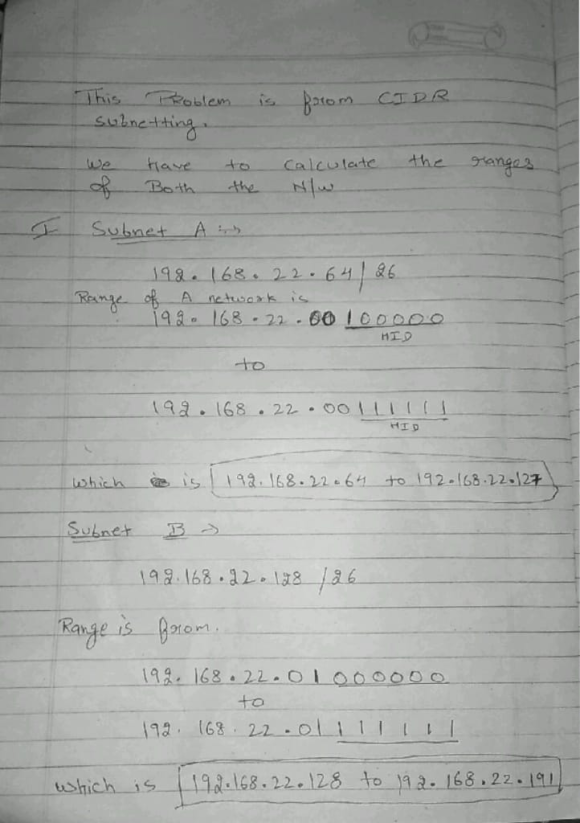 This Problem is from CIDR
subnetting.
We have to Calculate the ranges
of Both the N/W
I Subnet A :→
192.168.22.64/26
Range of A network is
192.168.22.00100000
HID
to
192.168.22.00111111
HID
which is 192.168.22.64 to 192.168.22.127
Subnet B →
192.168.22.128/26
Range is from.
192.168.22.01000000
to
192.168.22.01111111
which is 192.168.22.128 to 192.168.22.191